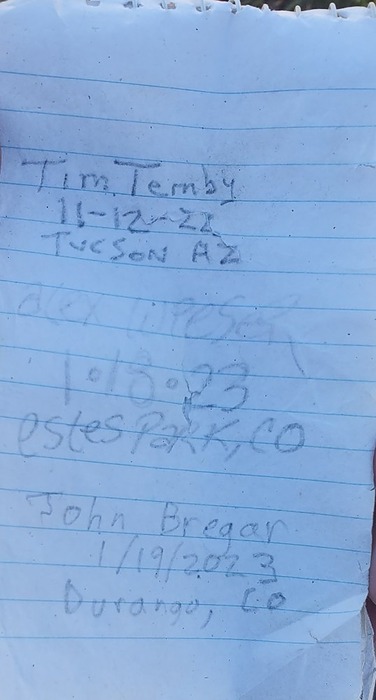 Tim Ternby
11-12-22
TUCSON AZ
alex
1.18.23
estes Park, CO
John Bregar
1/19/2023
Durango, CO